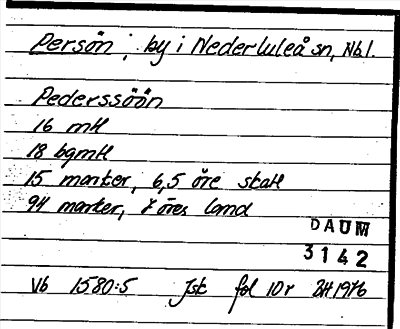 Persön, by i Nederluleå sn, Nbl.
Pederssöön
16 mtl
18 bgmtl
15 manter, 6,5 öre skatt
94 manter, öres land
DAUM
3142
Vb 1580:5 Jsk fol 10r 2H 1976